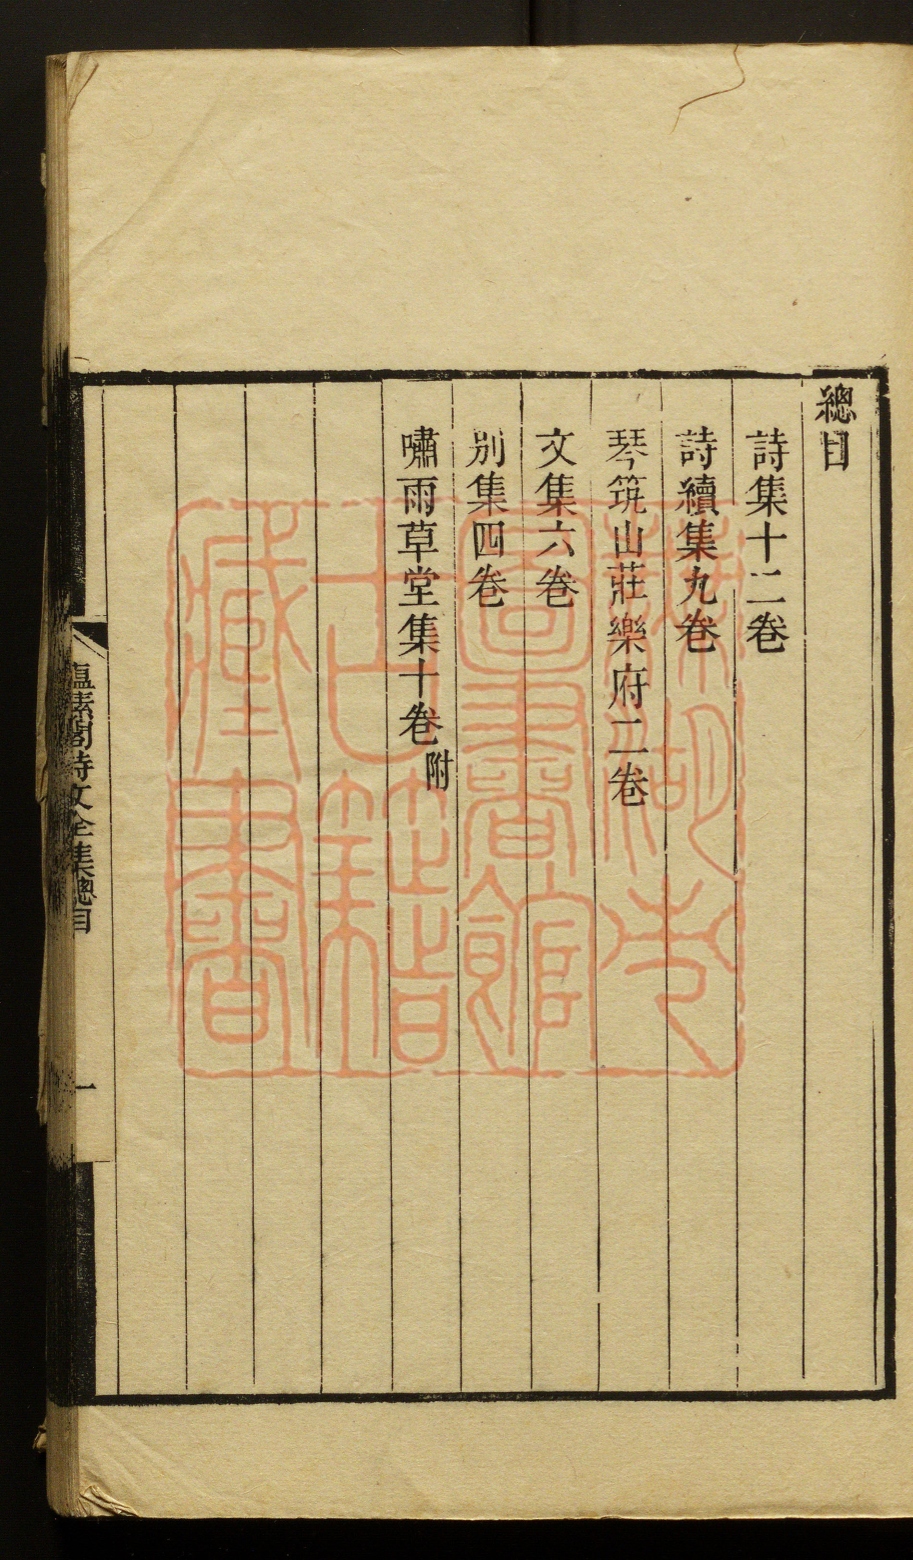 總目
詩集十二卷
詩續集九卷
琴筑山莊樂府二卷
文集六卷
別集四卷
嘯雨草堂集十卷附
蕴素閣詩文全集總目
一
圖書館
古籍
藏書